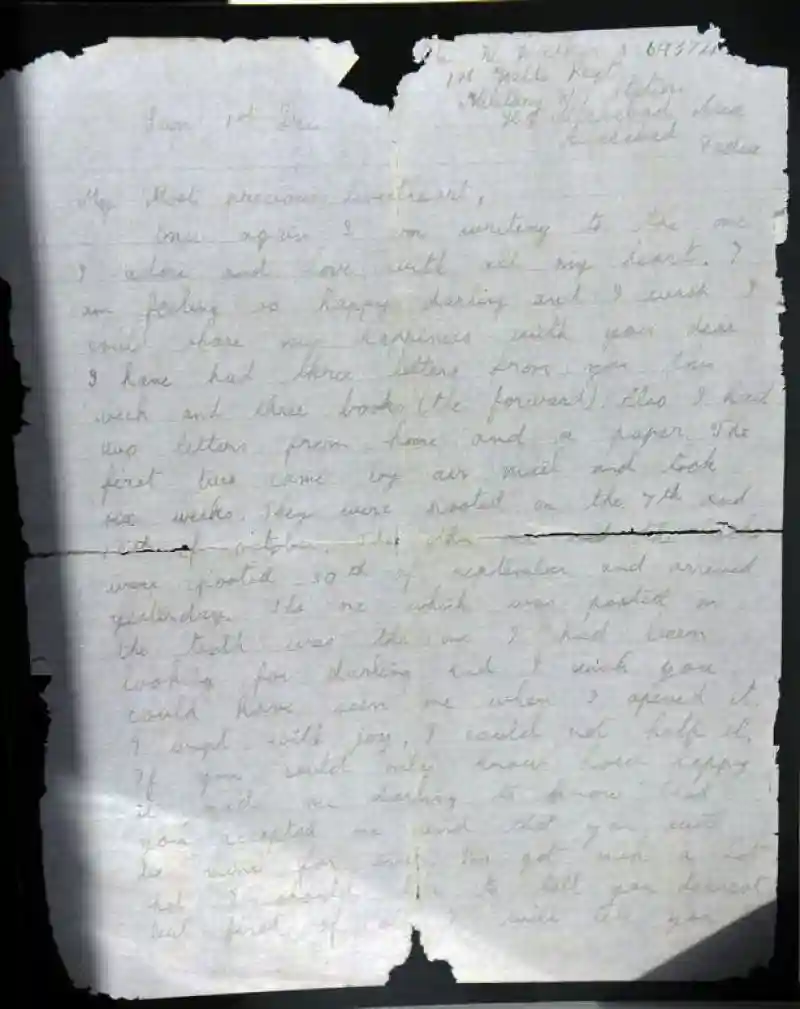 69374
1st Wilts Regt
Military
Area
Sun 1st Dec
My Most precious Sweetheart,
Once again I am writing to the one
I adore and love with all my heart. I
am feeling so happy darling and I wish I
could share my happiness with you dear
I have had three letters from you this
week and three books (the forward). Also I had
two letters from home and a paper. The
first two came by air mail and took
six weeks. They were posted on the 7th and
of october. The
were posted 30th of september and arrived
yesterday. The one which was posted on
the tenth was the one I had been
looking for darling and I wish you
could have seen me when I opened it.
I wept with joy, I could not help it.
If you could only know how happy
it made me darling to know that
you accepted me and that you will
be mine for ever. Ive got such a lot
I to tell you dearest
but first of all I will tell you